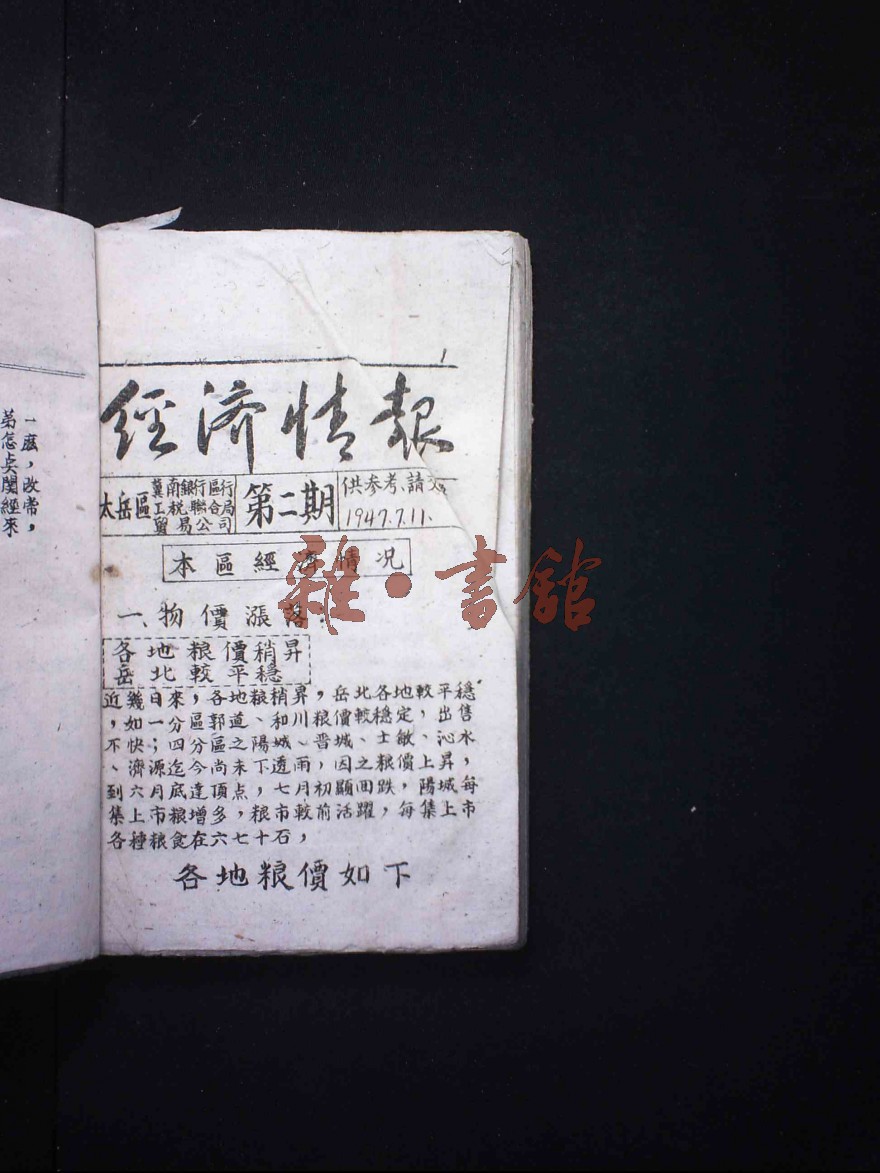 1
經济情報
太岳區
冀南銀行區行
工税聯合局
貿易公司
第二期
供参考、請交
1947.7.11.
本區經濟情况
一、物價漲落：
各地粮價稍昇
岳北較平穩
近幾日來，各地粮稍昇，岳北各地較平穩
，如一分區郭道、和川粮價較穩定，出售
不快；四分區之陽城、晋城、士敏、沁水
、濟源迄今尚未下透雨，因之粮價上昇，
到六月底達頂点，七月初顯回跌，陽城每
集上市粮增多，粮市較前活躍，每集上市
各種粮食在六七十石，
各地粮價如下
一应，改常，
弟怎点閲經來
雜·書館